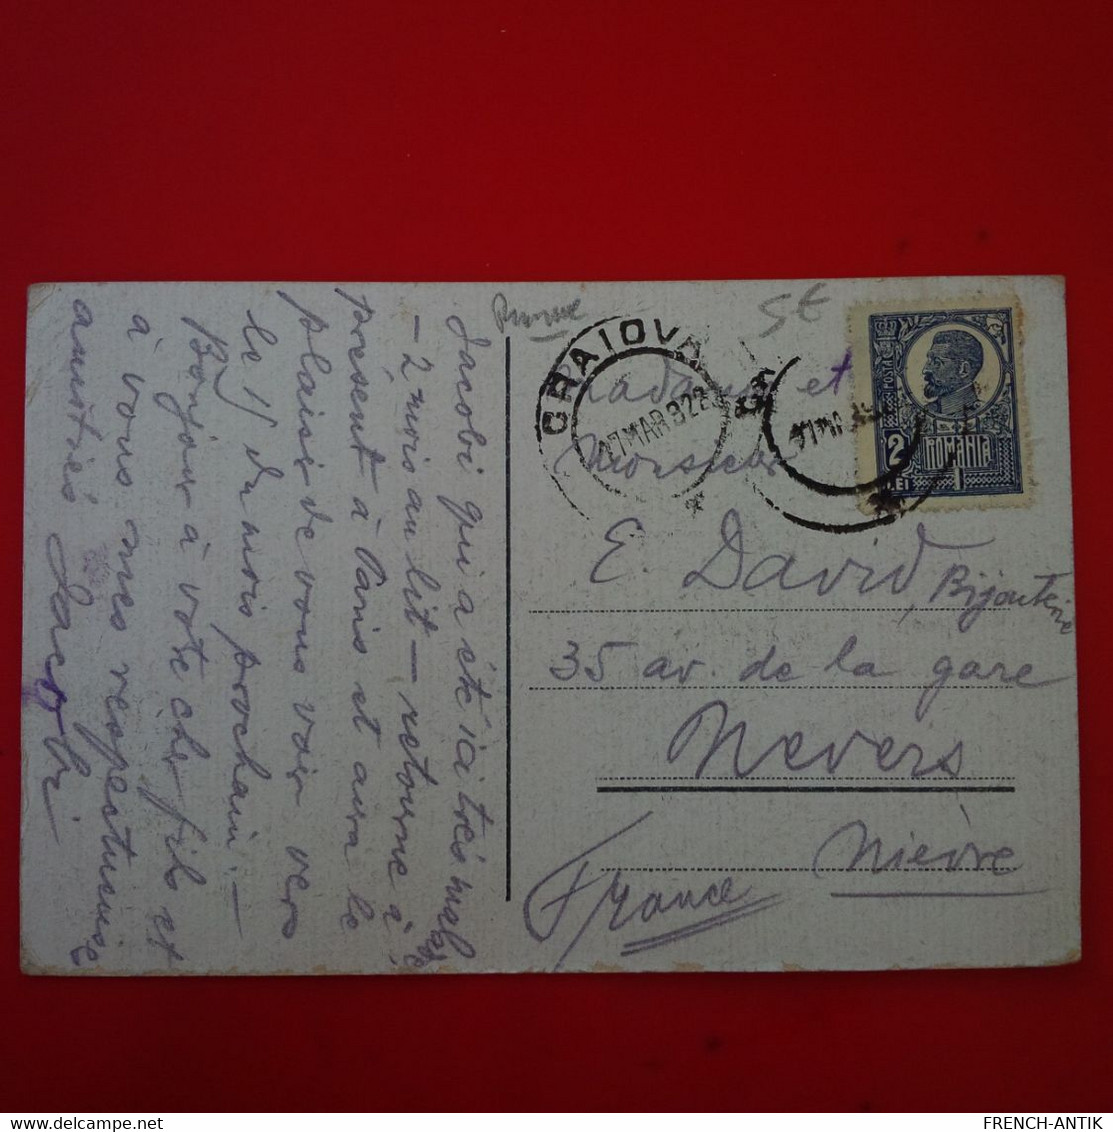 Jacobi qui a été ici très malade
– 2 mois au lit – retourne à
présent à Paris et aura le
plaisir de vous voir vers
le 15 du mois prochain. –
Bonjour à votre cher fils et
à vous mes respectueuses
amitiés Jacobi
St
CRAIOVA
17 MAR 922
POSTA
2
LEI
ROMANIA
Madame et
Monsieur
E. David,
Bijouterie
35 av. de la gare
Nevers
Nièvre
France
FRENCH-ANTIK